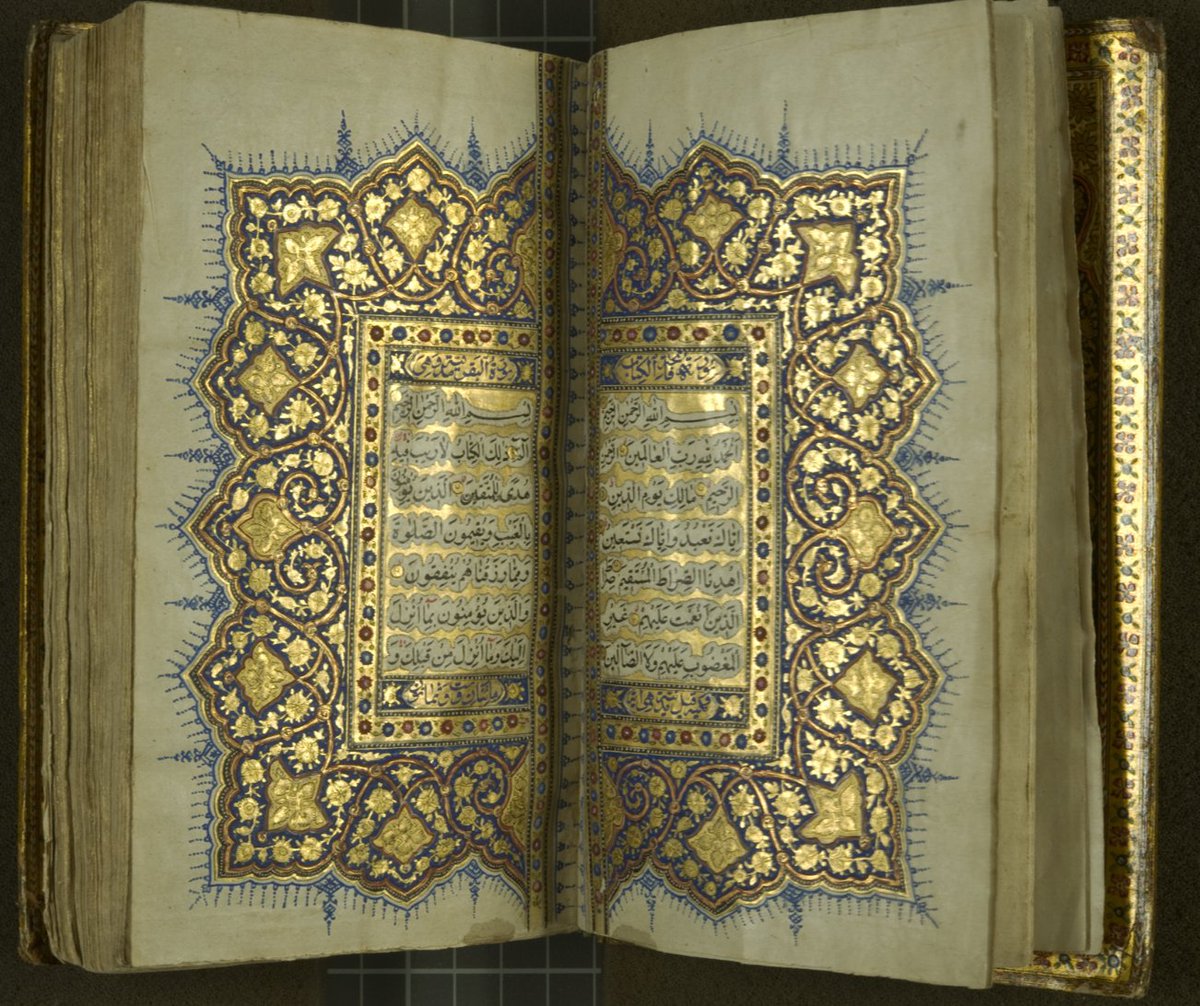 سورة فاتحة الكتاب
بِسْمِ اللهِ الرَّحْمٰنِ الرَّحِيمِ
اَلْحَمْدُ لِلّهِ رَبِّ الْعَالَمِينَ الرَّحْمٰنِ
الرَّحِيمِ مَالِكِ يَوْمِ الدِّينِ
اِيَّاكَ نَعْبُدُ وَاِيَّاكَ نَسْتَعِينُ
اِهْدِنَا الصِّرَاطَ الْمُسْتَقِيمَ صِرَاطَ
الَّذِينَ اَنْعَمْتَ عَلَيْهِمْ غَيْرِ
الْمَغْضُوبِ عَلَيْهِمْ وَلَا الضَّالِّينَ
سورة البقرة
بِسْمِ اللهِ الرَّحْمٰنِ الرَّحِيمِ
الٓمٓ ذٰلِكَ الْكِتَابُ لَا رَيْبَ فِيهِ
هُدًى لِلْمُتَّقِينَ اَلَّذِينَ يُؤْمِنُونَ
بِالْغَيْبِ وَيُقِيمُونَ الصَّلٰوةَ
وَمِمَّا رَزَقْنَاهُمْ يُنْفِقُونَ
وَالَّذِينَ يُؤْمِنُونَ بِمَا اُنْزِلَ
اِلَيْكَ وَمَا اُنْزِلَ مِنْ قَبْلِكَ وَ